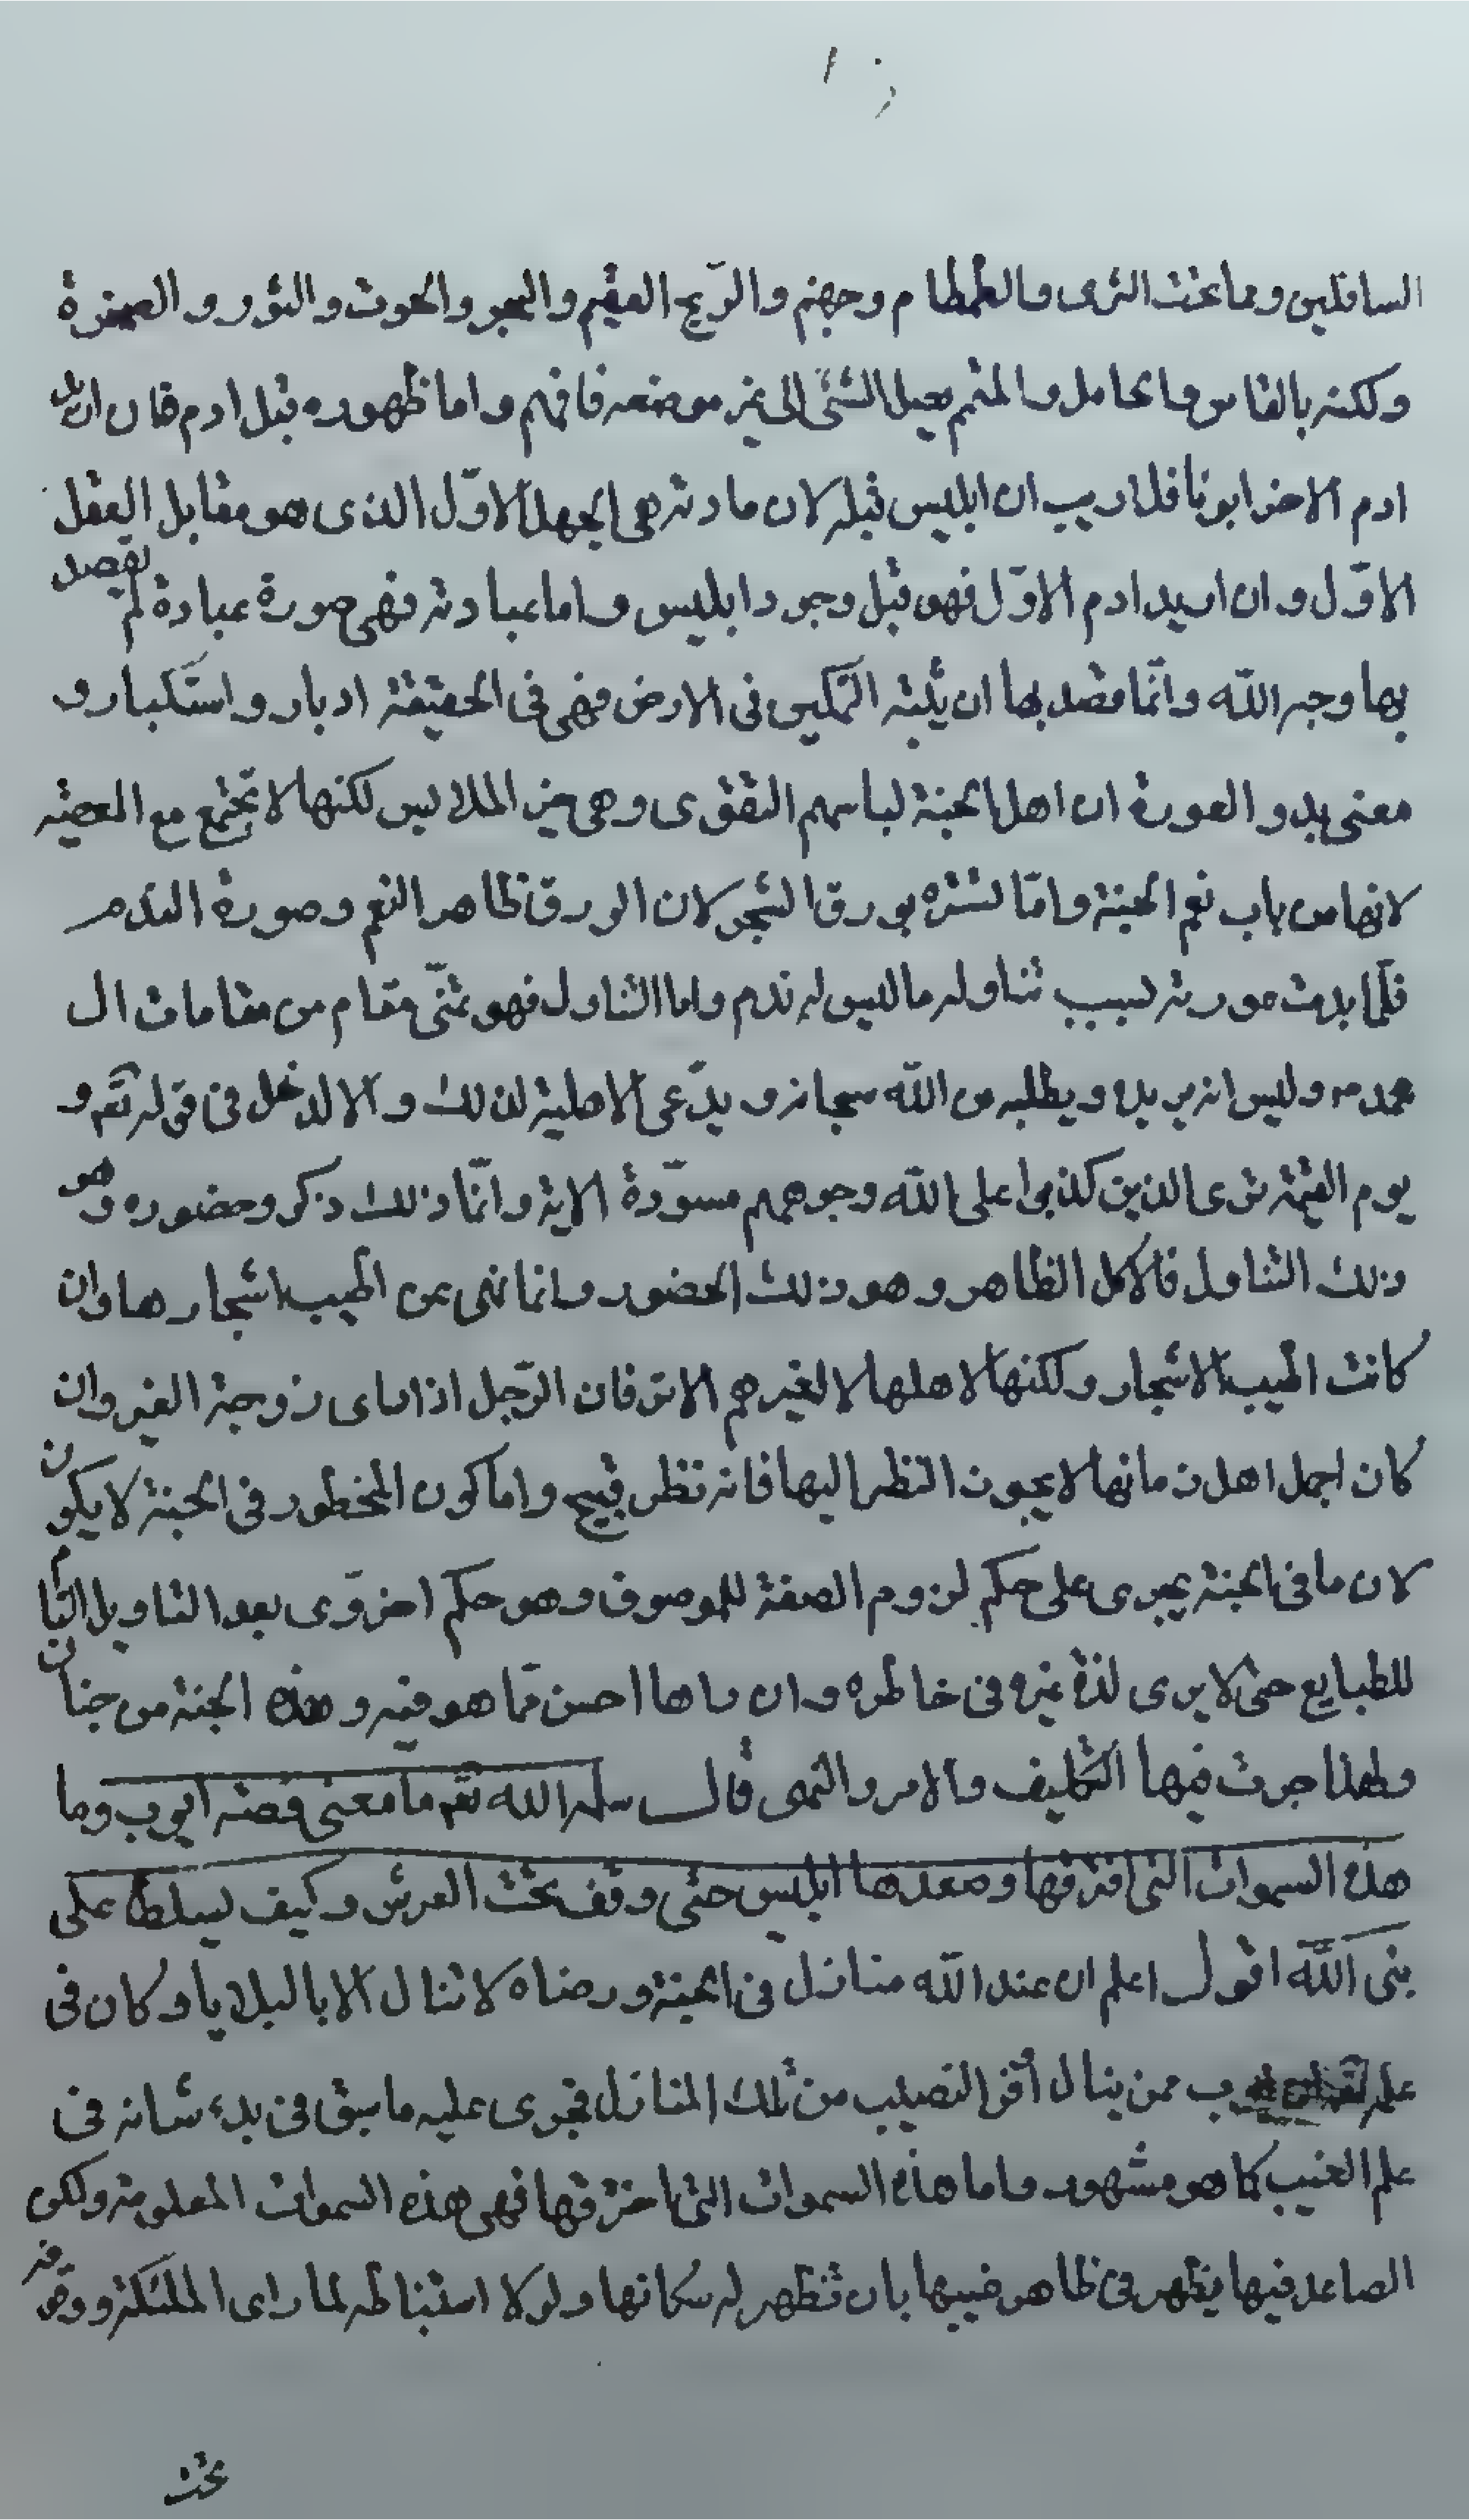 السافلين وما تحت الثرى والطمطام وجهنم والريح العقيم والبحر والحوت والثور والصخرة
ولكنه بالقاسر والحامل والمتمم يميل الشئ الى غير موضعه فافهم واما ظهوره قبل ادم فان اريد
ادم الاخر ابونا فلا ريب ان ابليس قبله لان مادته هى الجهل الاوّل الذى هو مقابل العقل
الاوّل وان اريد ادم الاوّل فهو قبل وجود ابليس واما عبادته فهى صورة عبادة لم يقصد
بها وجه اللّه وانّما قصد بها ان يثبته التمكين فى الارض فهى فى الحقيقة ادبار واستكبار و
معنى بدو العورة ان اهل الجنة لباسهم التقوى وهى خير الملابيس لكنها لا تجتمع مع المعصية
لانها من باب نعم الجنة وامّا تستّره بورق الشجر لان الورق ظاهر النعم وصورة الندم
فلمّا بدت صورته بسبب تناوله ما ليس له ندم واما التناول فهو تمنّى مقام من مقامات ال
محمد ص وليس انه يريده ويطلبه من اللّه سبحانه ويدّعى الاهلية لذلك والا لدخل فى قوله تعه و
يوم القيمة ترى الذين كذبوا على اللّه وجوههم مسوّدة الاية وانّما ذلك ذكر وحضوره وهو
ذلك التناول فالاكل الظاهر وهو ذلك الحضور وانما نهى عن اطيب اشجارها وان
كانت اطيب الاشجار ولكنها لاهلها لا لغيرهم الا ترى فان الرّجل اذا راى زوجة الغير وان
كان اجمل اهل زمانها لا يجوز النظر اليها فانه نظر قبيح واما كون المخطور فى الجنة لا يكون
لان ما فى الجنة يجرى على حكم لزوم الصفة للموصوف وهو حكم اخروّى بعد التاويل التام
للطبايع حتى لا يرى لذة غيره فى خاطره وان راها احسن ممّا هو فيه وهذه الجنة من جنان
ولهذا جرت فيها التكليف والامر والنهى قال سلمه الله تعه ما معنى قصة ايوب وما
هذه السموات التى اخترقها وصعدها ابليس حتى وقف تحت العرش وكيف يسلط على
نبى اللّه اقول اعلم ان عند اللّه منازل فى الجنة ورضاه لا تنال الا بالبلايا وكان فى
علمه ب ممن ينال أوفر النصيب من تلك المنازل فجرى عليه ما سبق فى بدء شانه فى
علم الغيب كما هو مشهود واما هذه السموات التى اخترقها فهى هذه السموات المعلومة ولكن
الصاعد فيها يظهر فى ظاهر غيبها بان تظهر له سكانها ولولا استنباطه لما راى الملئكة ووقوفه
تحت